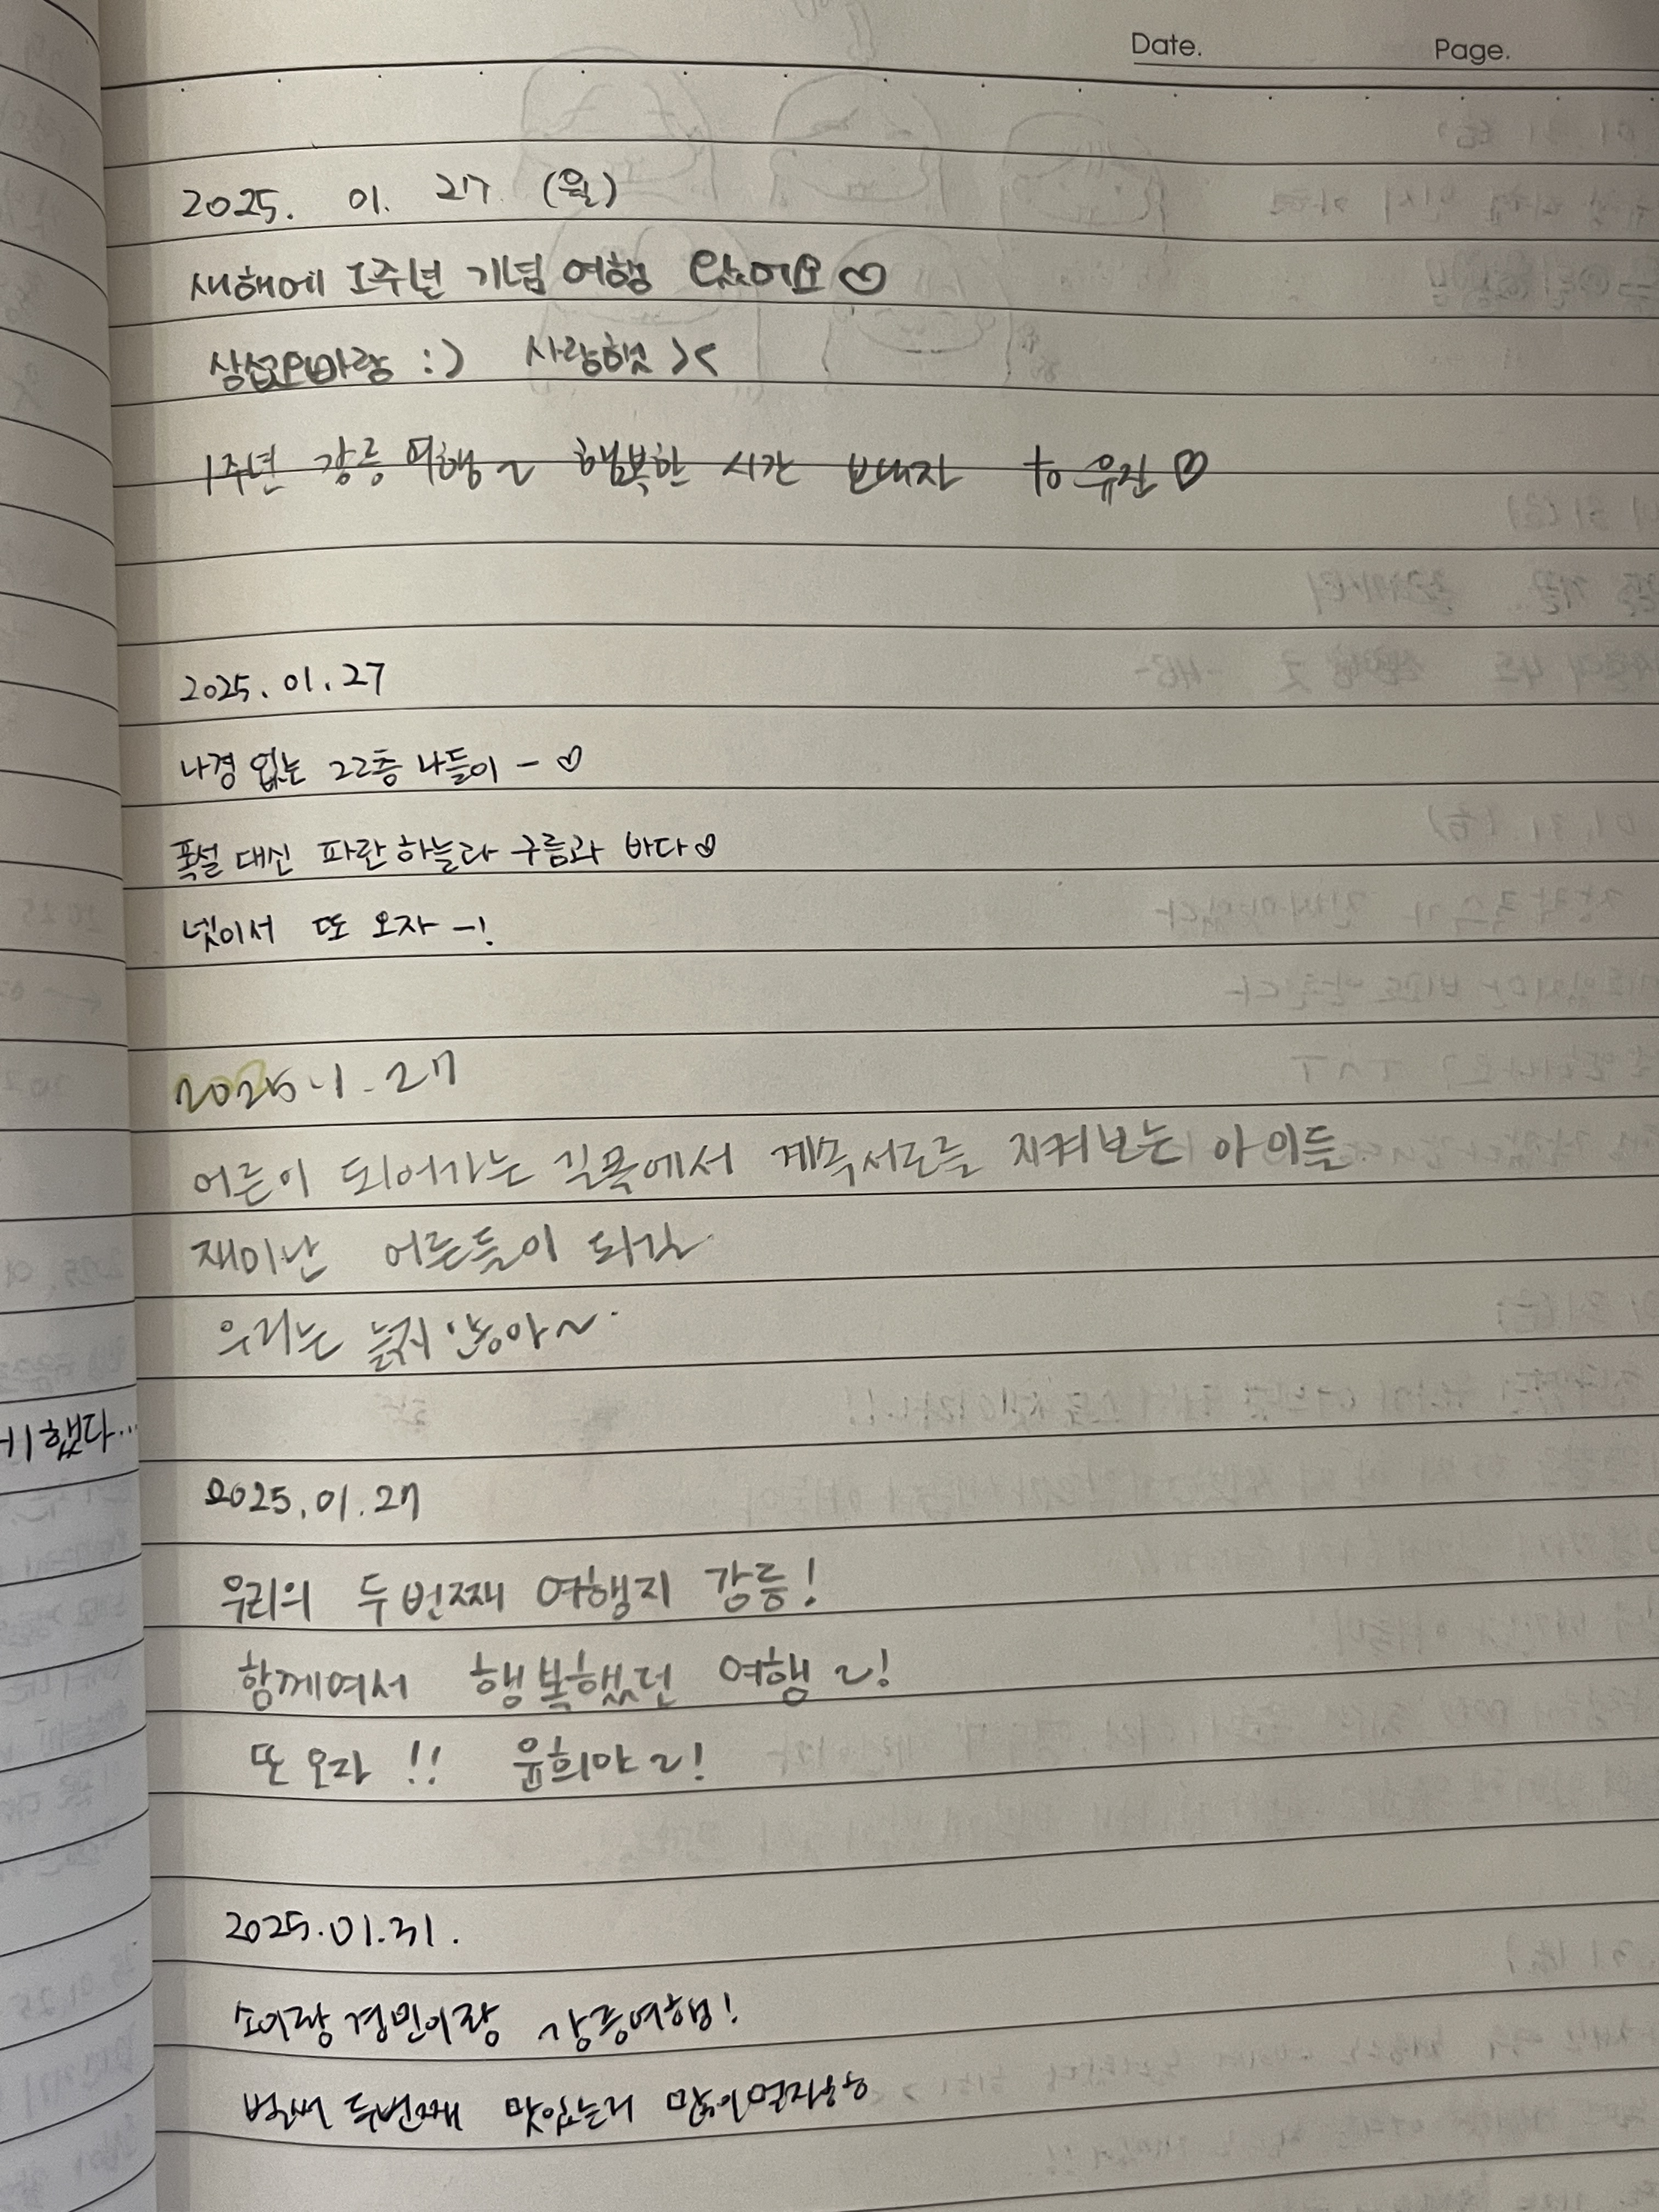 Date. Page.
2025. 01. 27. (월)
새해에 1주년 기념 여행 왔어요♡
상섭오빠랑 :) 사랑햇 ><
1주년 강릉 여행~ 행복한 시간 보내자 to 유진♡
2025.01.27
나경 없는 22층 나들이 - ♡
폭설 대신 파란하늘과 구름과 바다♡
넷이서 또 오자 -!
2025.1.27
어른이 되어가는 길목에서 계속서로를 지켜보는 아이들.
재미난 어른들이 되길.
우리는 늙지 않아~.
ㅔ했다...
2025.01.27
우리의 두번째 여행지 강릉!
함께여서 행복했던 여행~!
또 오자 !! 윤희야~!
2025.01.31.
소이랑 경민이랑 강릉여행!
벌써 두번째 맛있는거 많이먹자우하